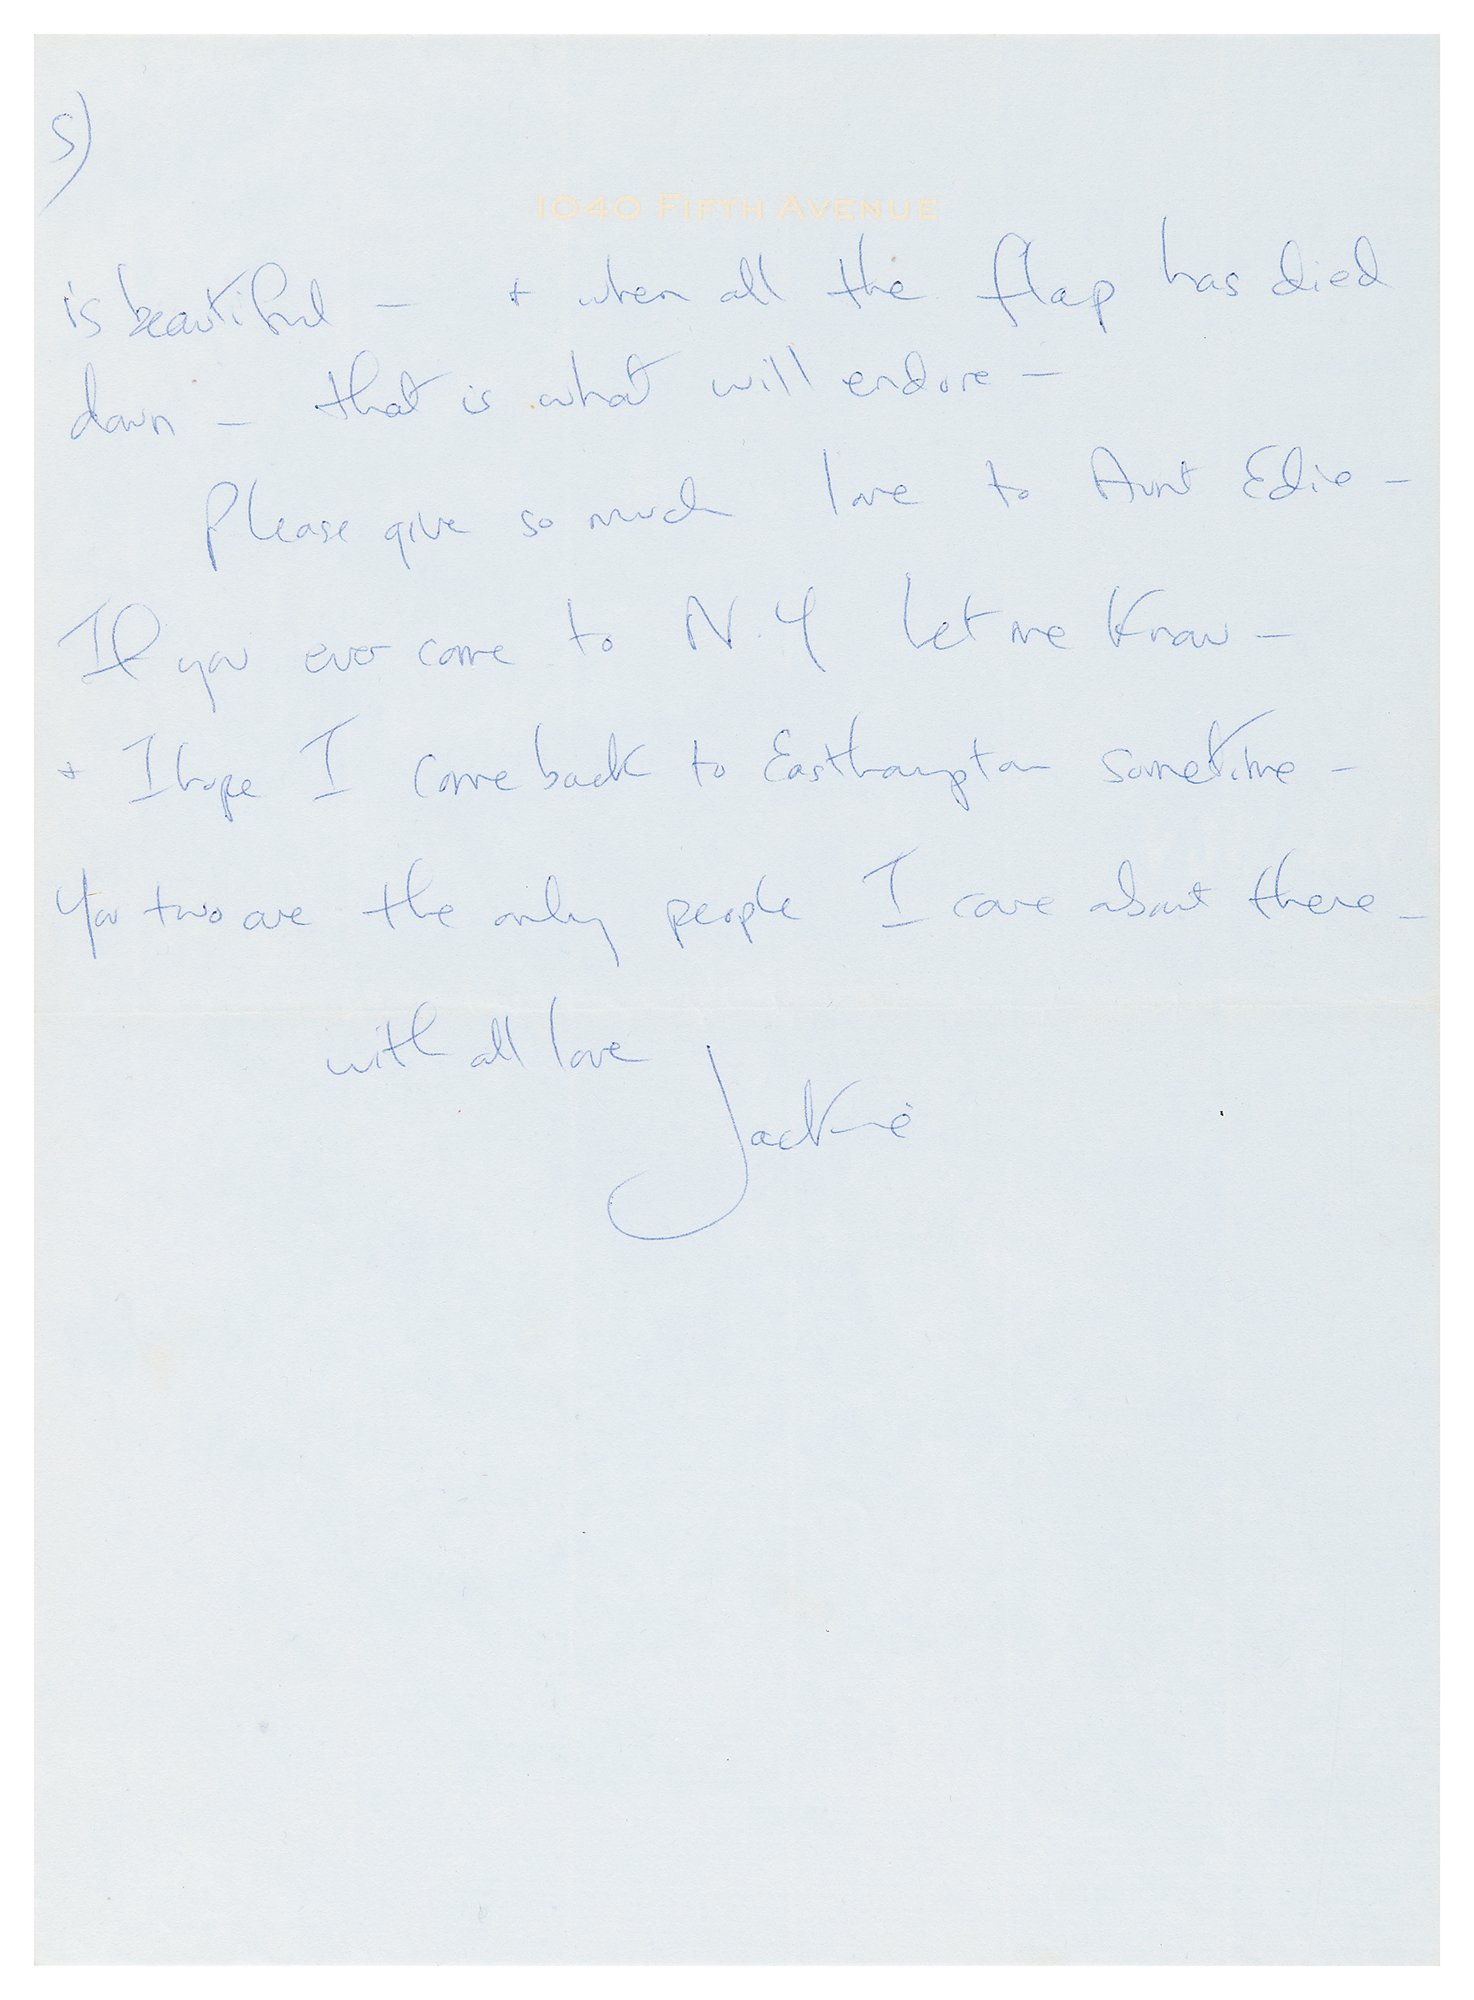 5)
1040 FIFTH AVENUE
is beautiful — + when all the flap has died
down — that is what will endure —
Please give so much love to Aunt Edie —
If you ever come to N.Y let me know —
+ I hope I come back to Easthampton sometime —
You two are the only people I care about there —
with all love
Jackie